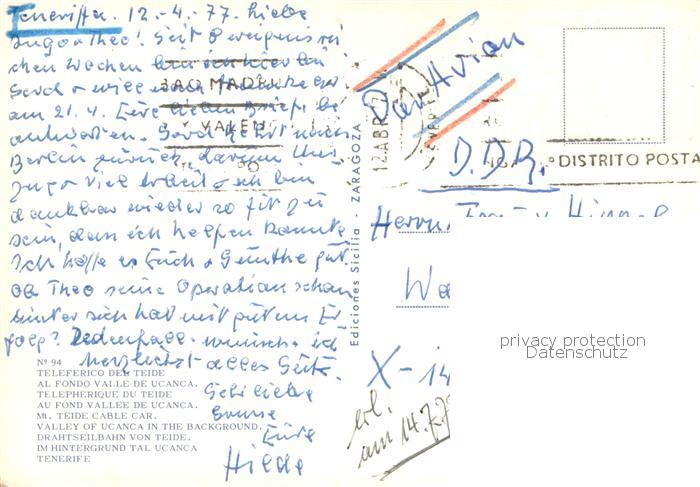 Teneriffa. 12.-4.-77. Liebe
Inge + Theo! Seit 8 ereignisrei
chen Wochen bin ich hier bei
Gerd + will
am 21.4. Eure lieben Briefe be
antworten. Gerd kehrt nach
Berlin zurück, darum
viel Arbeit + ich bin
dankbar wieder so fit zu
sein, dass ich helfen konnte.
Ich hoffe es Euch + Günthe gut,
ob Theo seine Operation schon
hinter sich hat mit gutem Er
folg? Jedenfalls wünsche ich
herzlichst alles Gute.
Seid lieb
Eure
Hilde
Nº 94
TELEFERICO DEL TEIDE
AL FONDO VALLE DE UCANCA.
TELEPHERIQUE DU TEIDE
AU FOND VALLEE DE UCANCA.
Mt. TEIDE CABLE CAR.
VALLEY OF UCANCA IN THE BACKGROUND.
DRAHTSEILBAHN VON TEIDE.
IM HINTERGRUND TAL UCANCA
TENERIFE
Ediciones Sicilia - ZARAGOZA
MADRI
VALEN
12 ABR
DISTRITO POSTA
Par Avion
D.D.R.
Herrn
X-14
erl.
am 14.7.77
privacy protection
Datenschutz